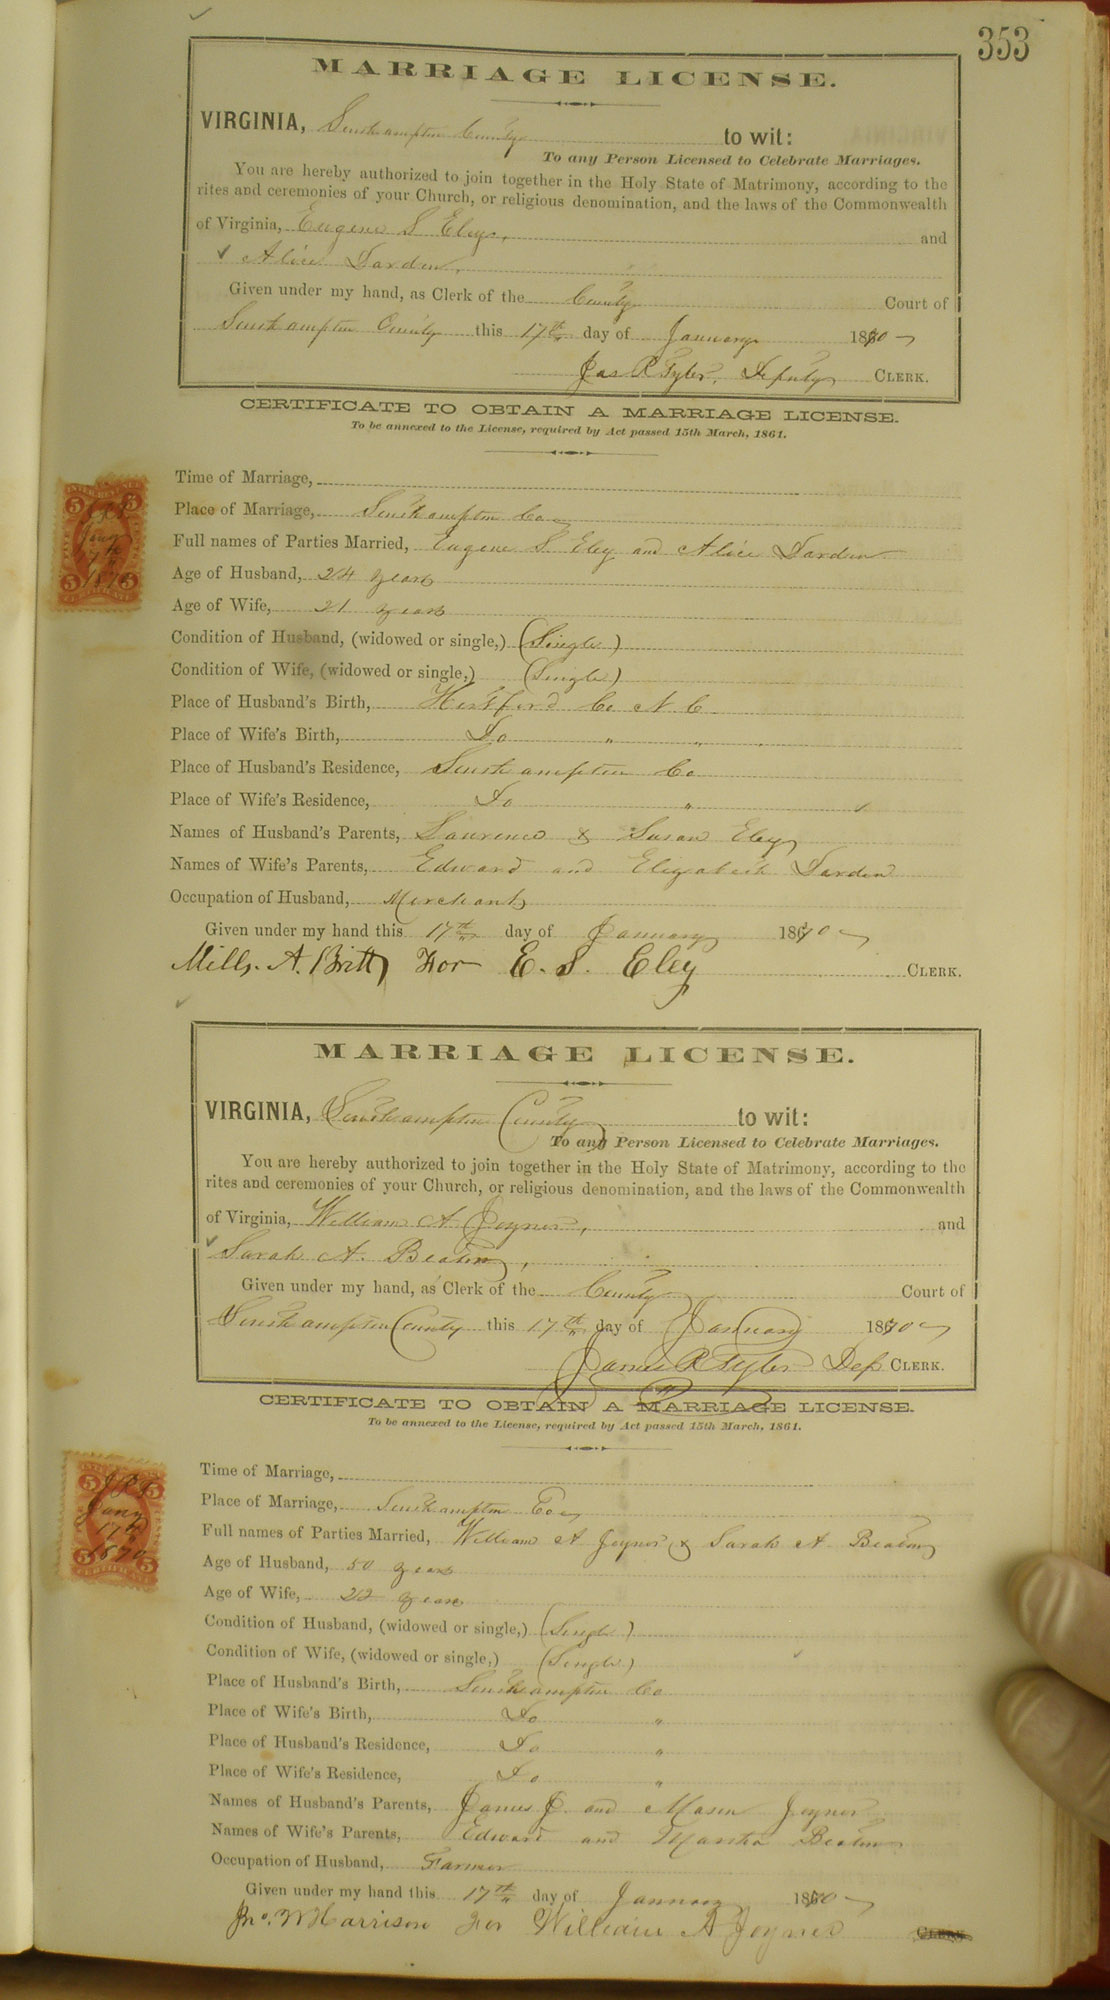 353
MARRIAGE LICENSE.
VIRGINIA, Southampton County to wit:
To any Person Licensed to Celebrate Marriages.
You are hereby authorized to join together in the Holy State of Matrimony, according to the
rites and ceremonies of your Church, or religious denomination, and the laws of the Commonwealth
of Virginia, Eugene S Eley, and
Alice Darden,
Given under my hand, as Clerk of the County Court of
Southampton County this 17th day of January 1870
Jas R Tyler, Deputy CLERK.
CERTIFICATE TO OBTAIN A MARRIAGE LICENSE.
To be annexed to the License, required by Act passed 15th March, 1861.
Time of Marriage,
Place of Marriage, Southampton Co
Full names of Parties Married, Eugene S. Eley and Alice Darden
Age of Husband, 24 years
Age of Wife, 21 years
Condition of Husband, (widowed or single,) (Single)
Condition of Wife, (widowed or single,) (Single)
Place of Husband's Birth, Hertford Co N. C.
Place of Wife's Birth, Do " "
Place of Husband's Residence, Southampton Co
Place of Wife's Residence, Do "
Names of Husband's Parents, Laurence & Susan Eley
Names of Wife's Parents, Edward and Elizabeth Darden
Occupation of Husband, Merchant
Given under my hand this 17th day of January 1870
Mills. A. Britt For E. S. Eley CLERK.
INTER. REVENUE
5 5
JRT
Jany
17th
1870
5 5
CERTIFICATE
MARRIAGE LICENSE.
VIRGINIA, Southampton County to wit:
To any Person Licensed to Celebrate Marriages.
You are hereby authorized to join together in the Holy State of Matrimony, according to the
rites and ceremonies of your Church, or religious denomination, and the laws of the Commonwealth
of Virginia, William A Joyner, and
Sarah A. Beaton,
Given under my hand, as Clerk of the County Court of
Southampton County this 17th day of January 1870
James R Tyler Dep CLERK.
CERTIFICATE TO OBTAIN A MARRIAGE LICENSE.
To be annexed to the License, required by Act passed 15th March, 1861.
Time of Marriage,
Place of Marriage, Southampton Co
Full names of Parties Married, William A Joyner & Sarah A. Beaton
Age of Husband, 50 years
Age of Wife, 22 years
Condition of Husband, (widowed or single,) (Single)
Condition of Wife, (widowed or single,) (Single)
Place of Husband's Birth, Southampton Co
Place of Wife's Birth, Do "
Place of Husband's Residence, Do "
Place of Wife's Residence, Do "
Names of Husband's Parents, James and Joyner
Names of Wife's Parents, Edward and Martha Beaton
Occupation of Husband, Farmer
Given under my hand this 17th day of January 1870
Jno. W Harrison For William A Joyner CLERK
5 5
JRT
Jany
17th
1870
5 5
CERTIFICATE